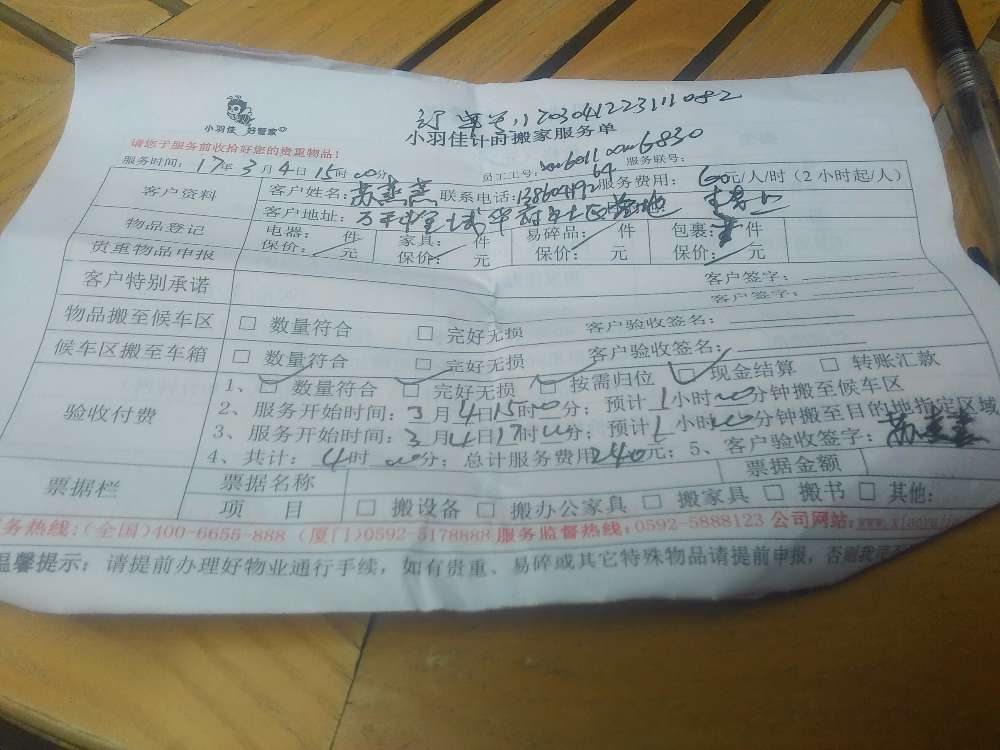 订单号:170304122311082
小羽佳 好管家
小羽佳计时搬家服务单
请您于服务前收拾好您的贵重物品!
服务时间: 17年3月4日15时00分 员工工号: 服务联号:
客户资料 客户姓名: 联系电话: 服务费用: 60元/人/时(2小时起/人)
客户地址:
物品登记 电器: 件 家具: 件 易碎品: 件 包裹: 件
贵重物品申报 保价: 元 保价: 元 保价: 元 保价: 元
客户特别承诺 客户签字:
客户签字:
物品搬至候车区 □ 数量符合 □ 完好无损 客户验收签名:
候车区搬至车箱 □ 数量符合 □ 完好无损 客户验收签名:
验收付费 1、□ 数量符合 □ 完好无损 □ 按需归位 □ 现金结算 □ 转账汇款
2、服务开始时间:3月4日15时00分;预计1小时00分钟搬至候车区
3、服务开始时间:3月4日17时00分;预计1小时00分钟搬至目的地指定区域
4、共计:4时00分;总计服务费用240元;5、客户验收签字:
票据栏 票据名称 票据金额
项 目 □ 搬设备 □ 搬办公家具 □ 搬家具 □ 搬书 □ 其他:
务热线:(全国)400-6655-888 (厦门)0592 5178888 服务监督热线:0592-5888123 公司网站:
温馨提示:请提前办理好物业通行手续,如有贵重、易碎或其它特殊物品请提前申报,否则我司